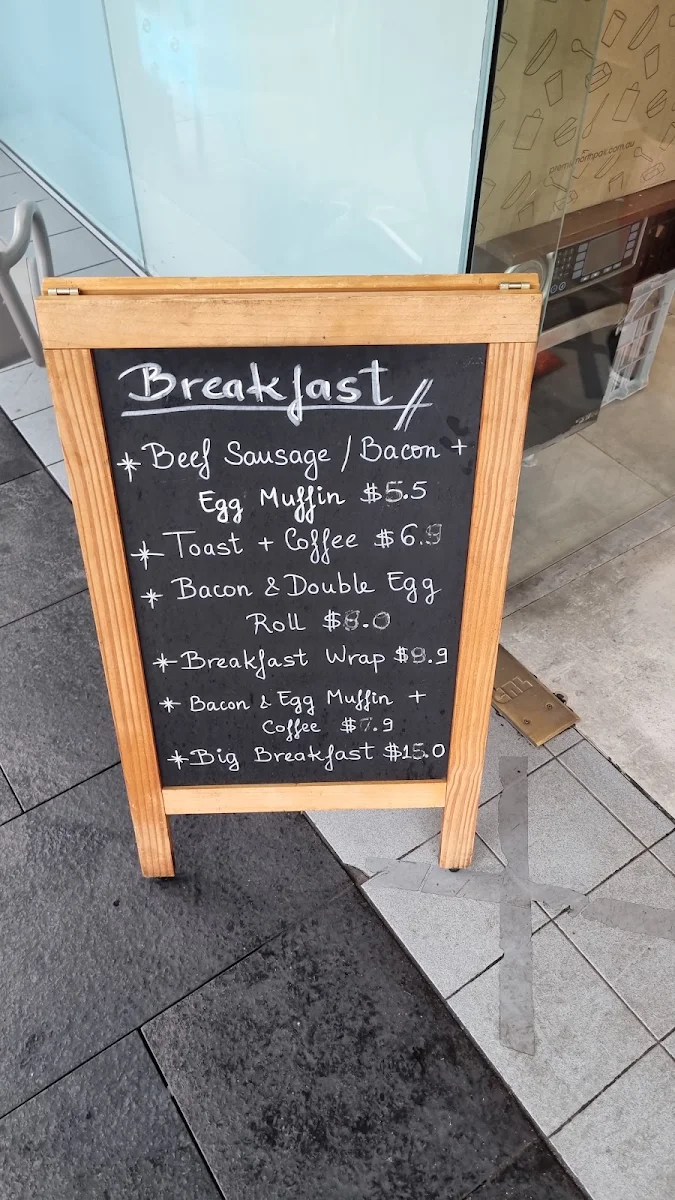 Breakfast
* Beef Sausage / Bacon +
Egg Muffin $5.5
* Toast + Coffee $6.9
* Bacon & Double Egg
Roll $8.0
* Breakfast Wrap $9.9
* Bacon & Egg Muffin +
Coffee $7.9
* Big Breakfast $15.0